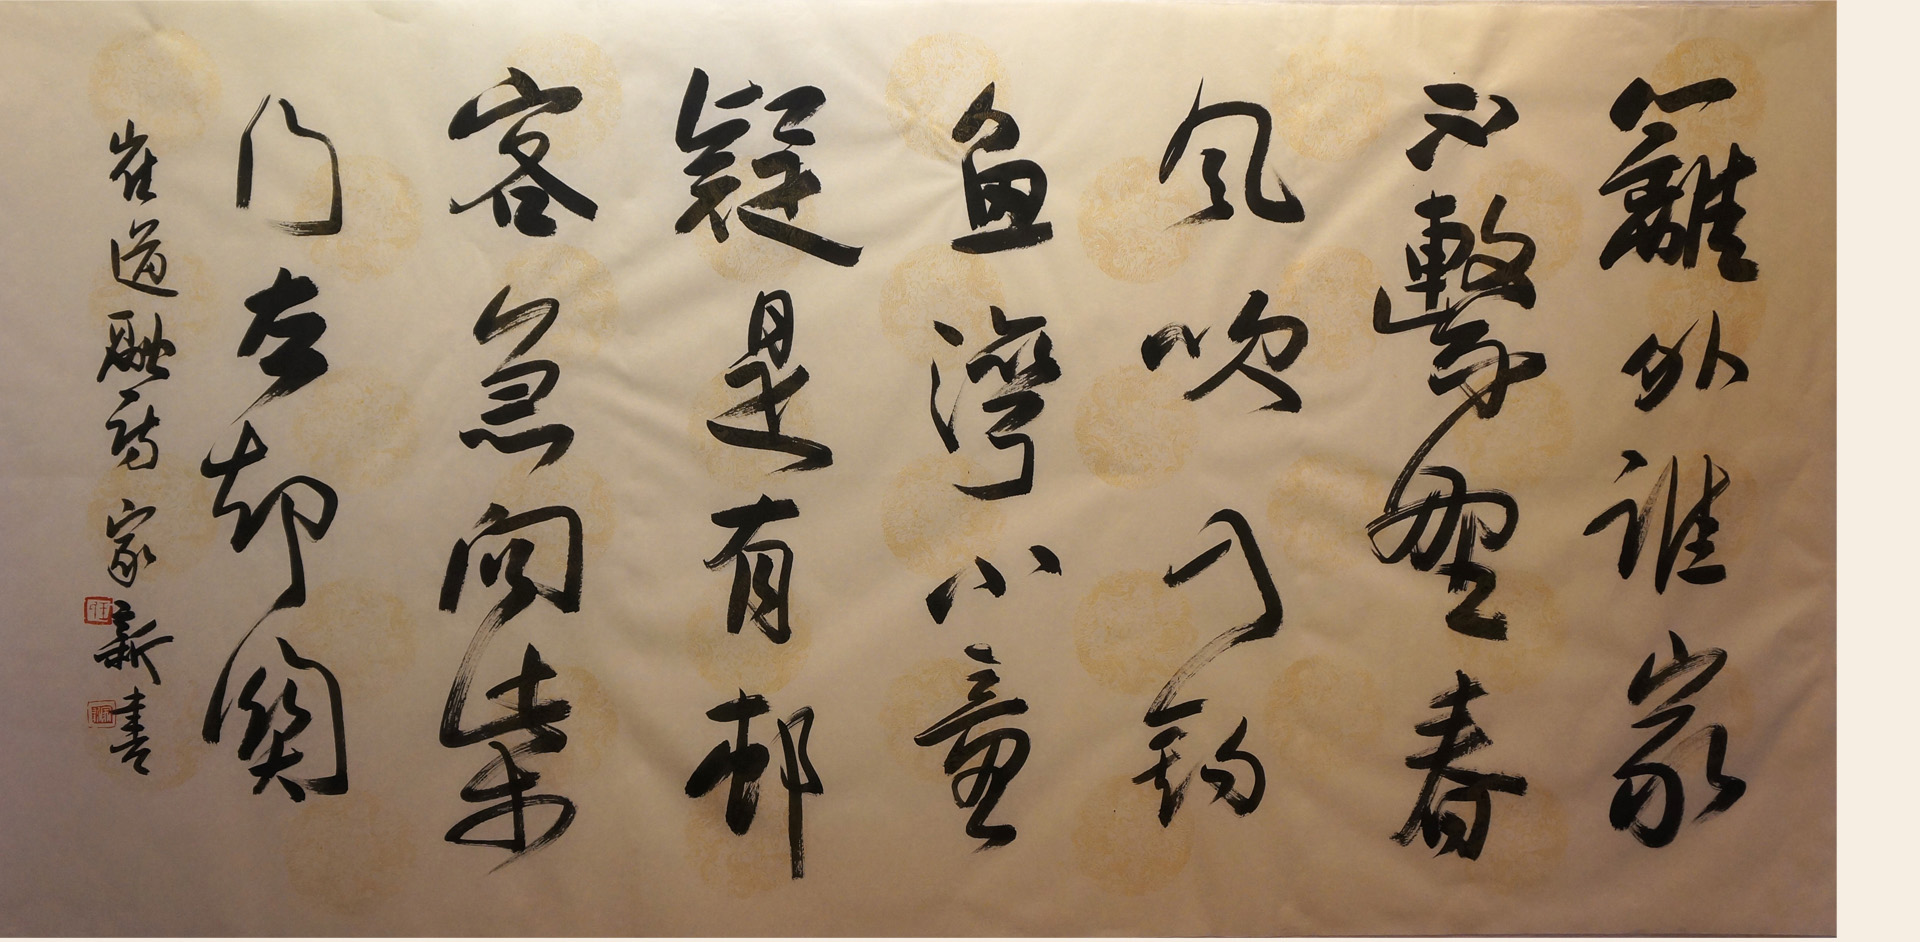 籬外誰家
不繫船春
風吹入釣
魚灣小童
疑是有邨
客急向柴
门去却関
崔道融詩 家新書